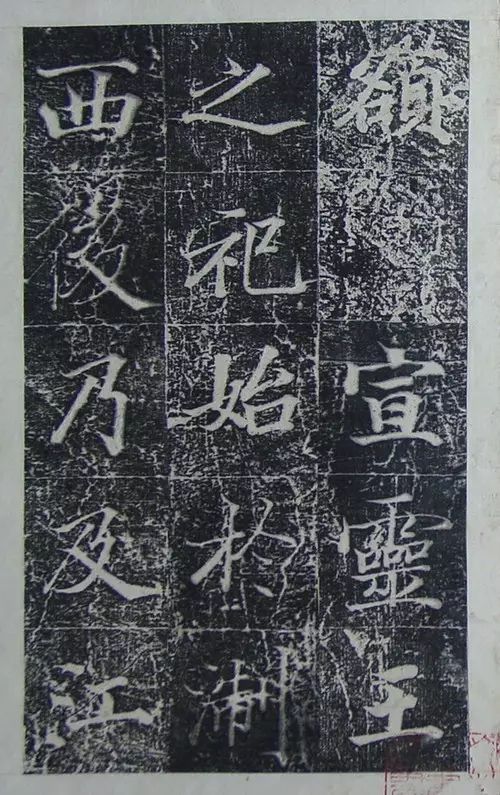 宣靈王
之祀始於淛
西後乃及江